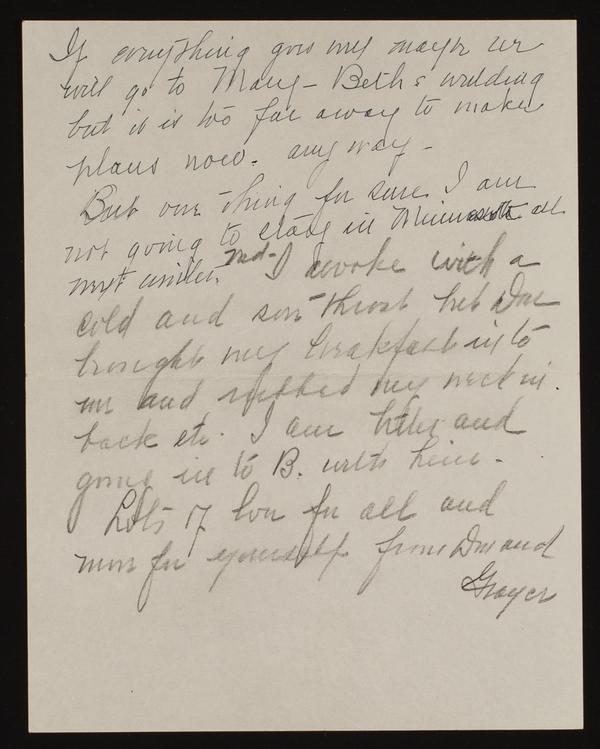 If everything goes my maybe we
will go to Mary-Beth's wedding
but it is too far away to make
plans now. anyway -
But one thing for sure I am
not going to stay in Minnesota all
next winter.
Wed - I awoke with a
cold and sore throat but Doc
brought my breakfast in to
me and rubbed my neck in.
back etc. I am better and
going in to B. with him -
Lots of love for all and
more for yourself from Doc and
Grayce